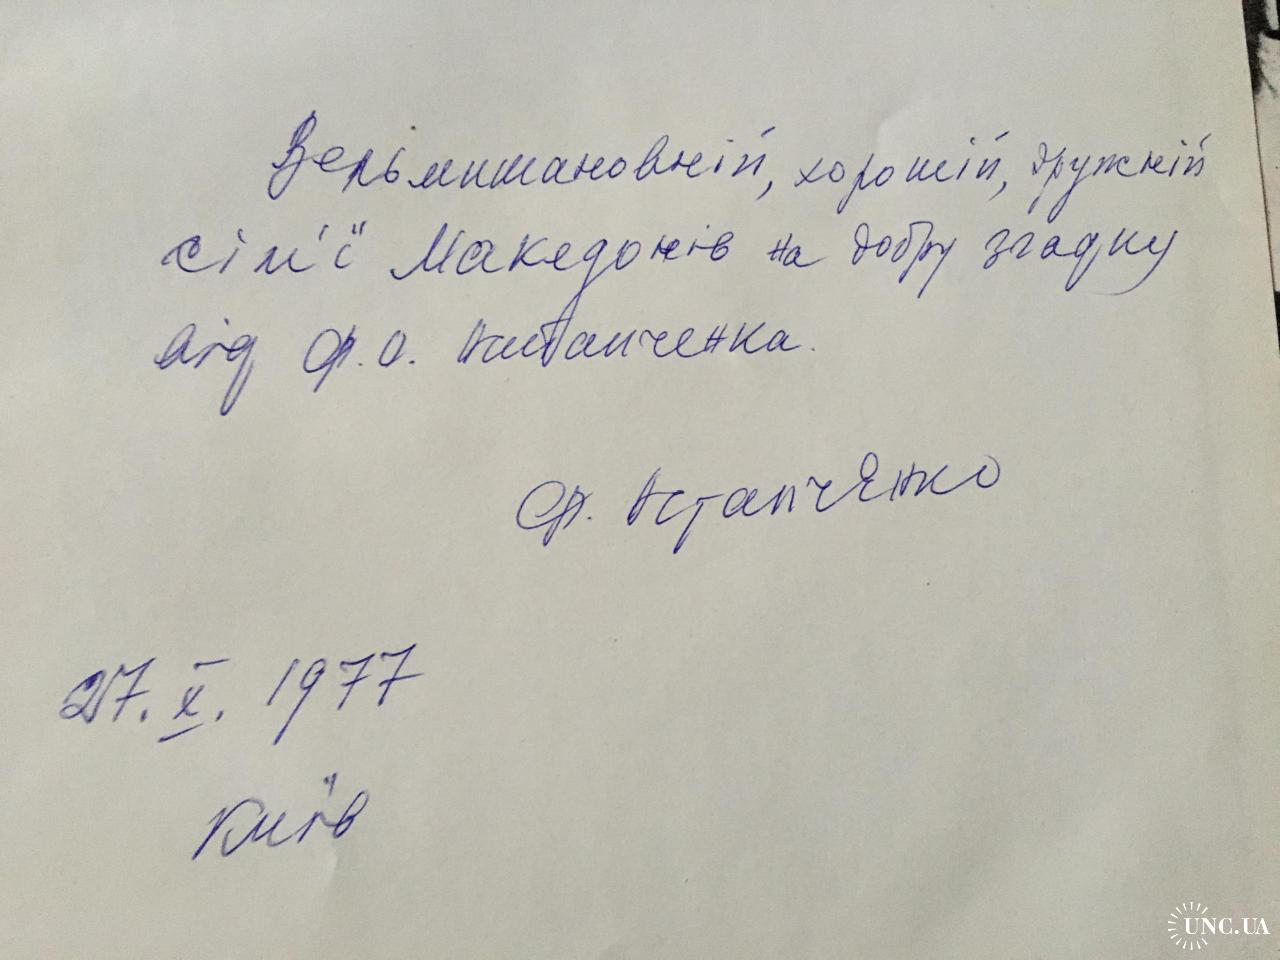 Вельмишановній, хорошій, дружній
сім'ї Македонів на добру згадку
від Ф. О. Астапченка.
Ф. Астапченко
27. X. 1977
Київ
UNC.UA